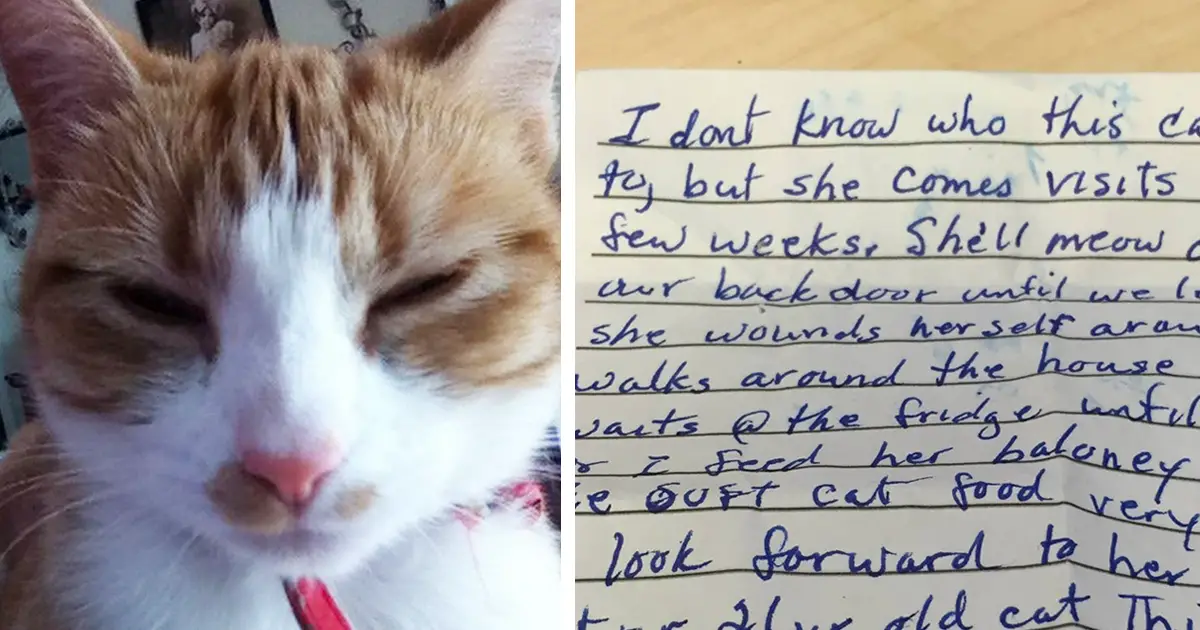 I dont know who this
to, but she comes visits
few weeks. She'll meow
our back door until we
she wounds herself
walks around the house
@ the fridge
I feed her baloney
cat food very
look forward to her
21 yr old cat